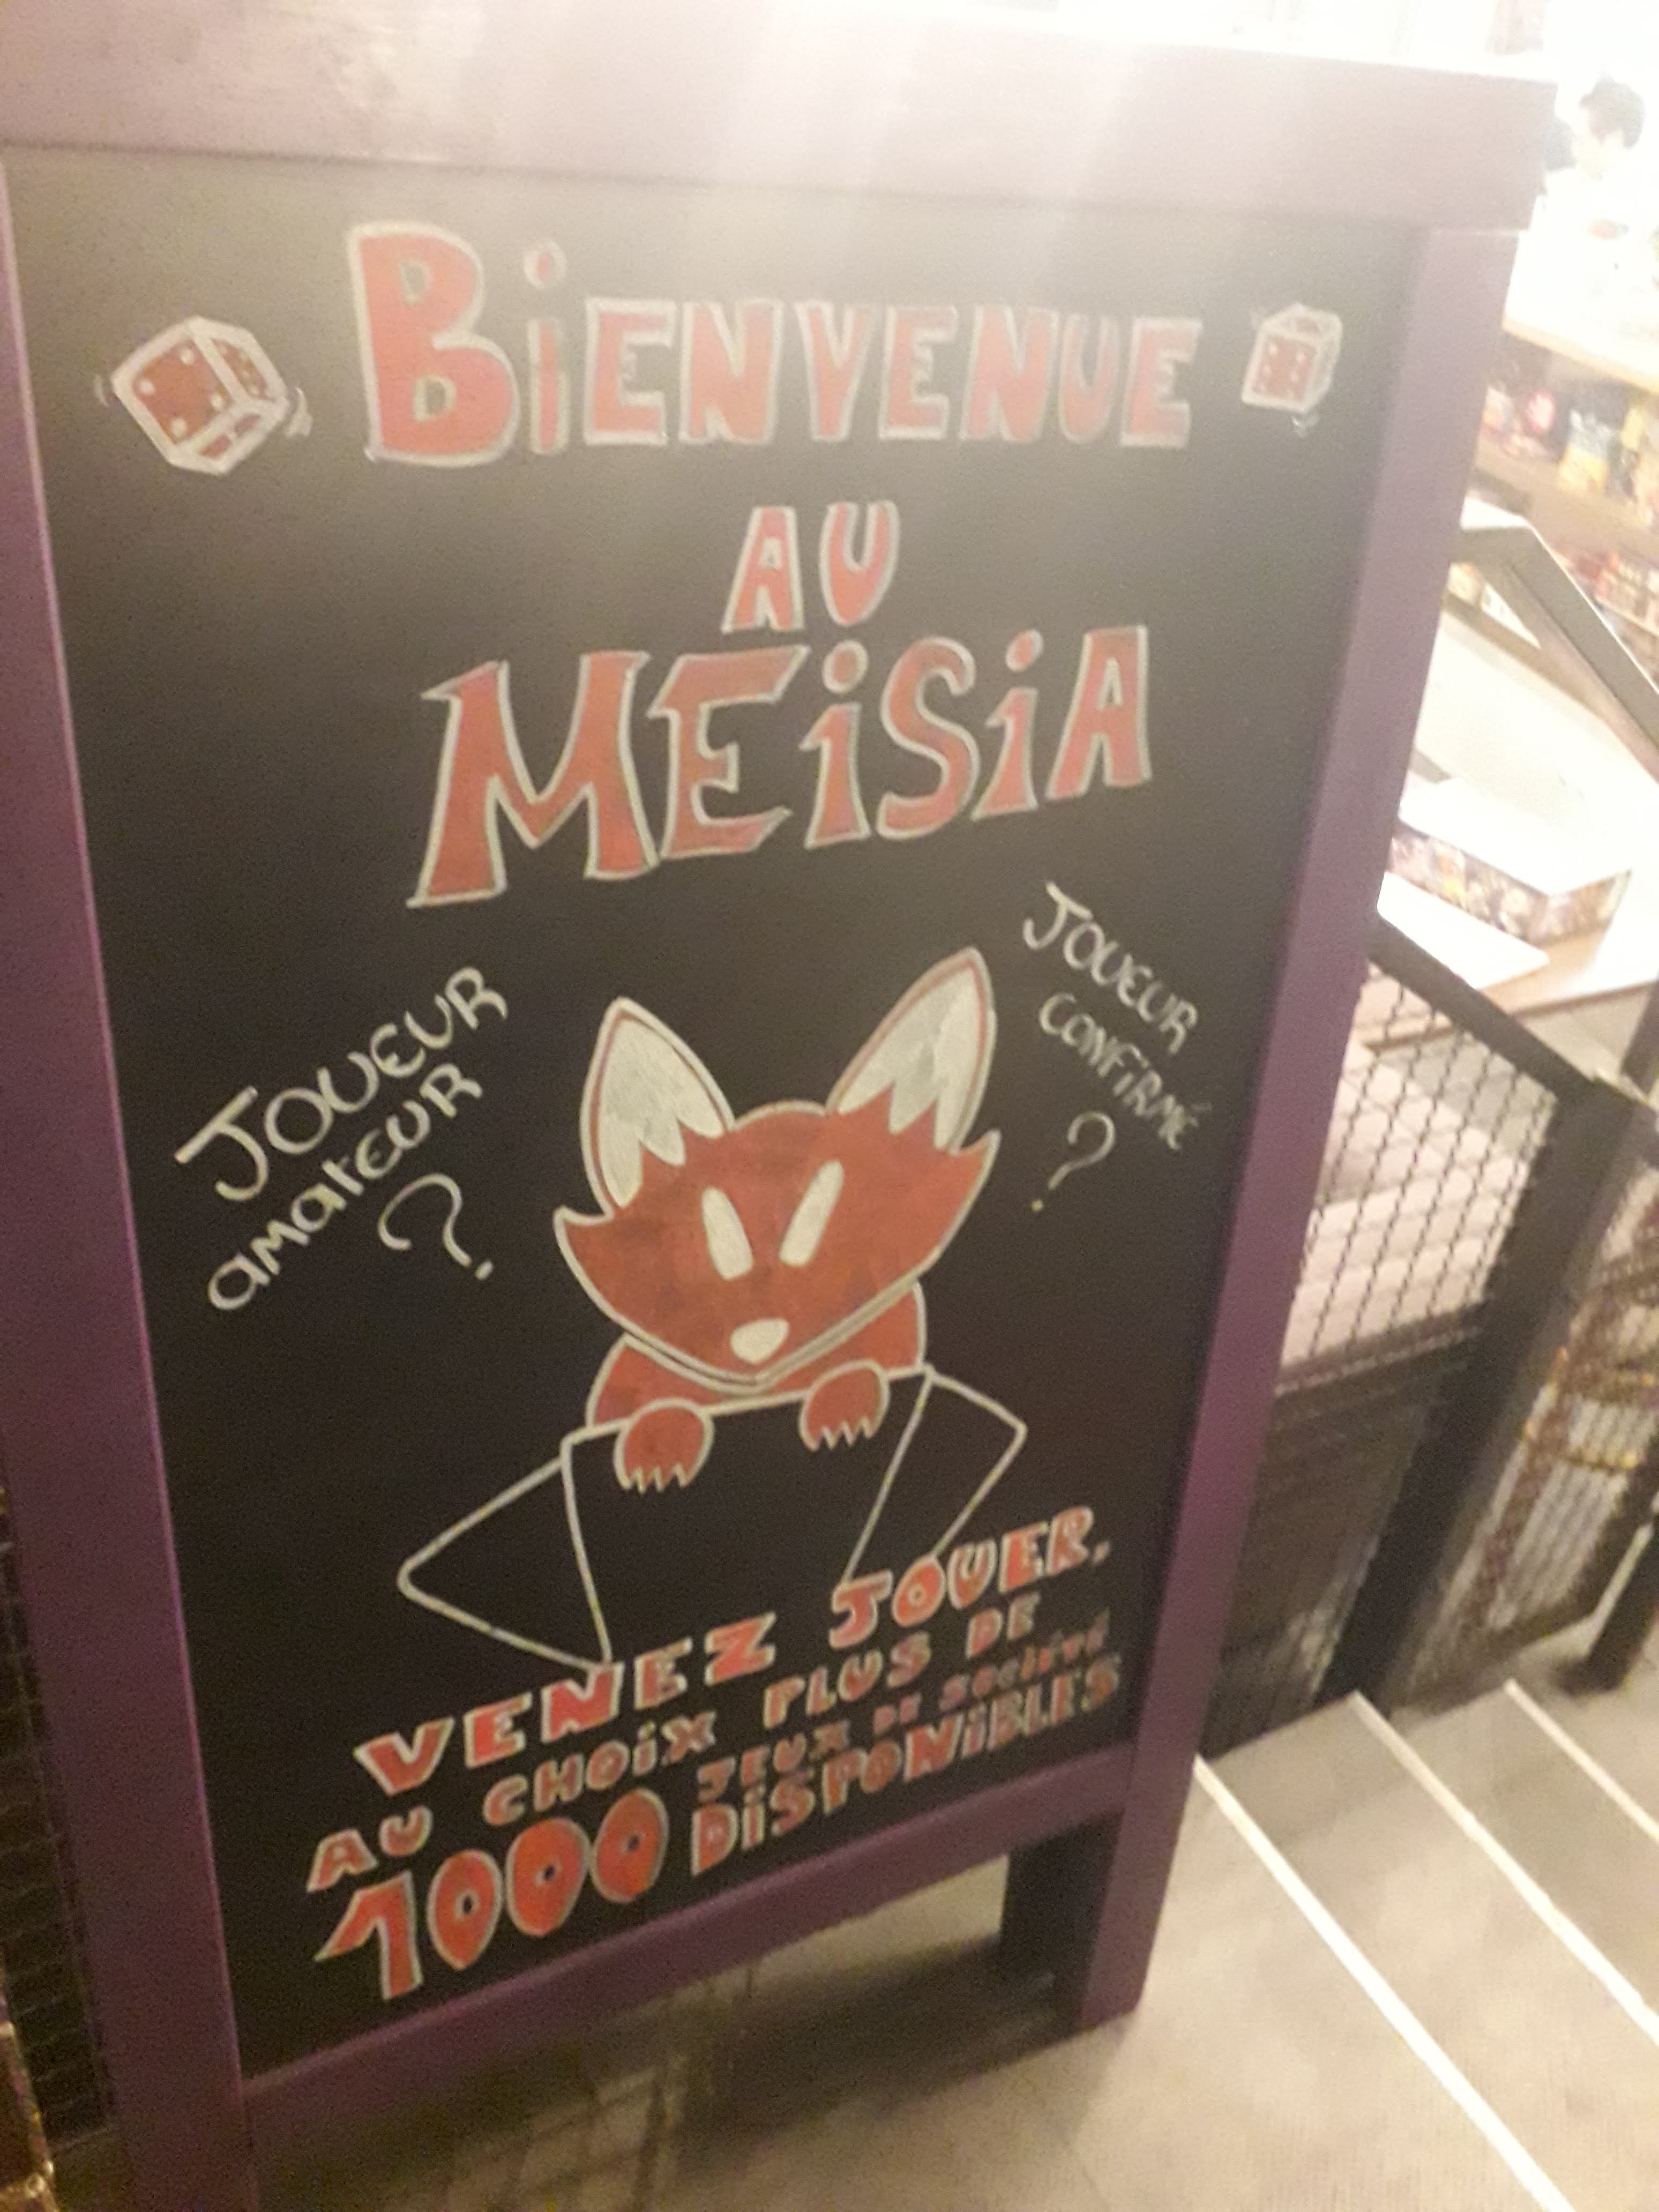 BiENVENUE
AU
MEiSiA
JOUEUR
amateUR
?
JOUEUR
CONFiRMÉ
?
VENEZ JOUER,
AU CHOiX PLUS DE
1000 JEUX DE SOCiÉTÉ
DiSPONiBLES